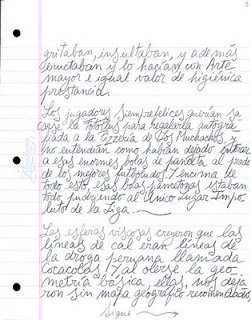 gritaban, insultaban, y además
eructaban y lo hacían con Arte
mayor e igual valor de higiénica
prestancia.
Los jugadores siempre felices querían sa
carse la Foto para regalarla autogra
fiada a la Pizzería de Los Muchachos y
no entendían como habían dejado entrar
a esas enormes bolas de panceta al prado
de los mejores futbolistas. Y encima de
todo esto esas bolas estaban
todo pudriendo al Único Lugar Impo
luto de la Liga.
Las esferas viscosas creyeron que las
líneas de cal eran líneas de
la droga peruana llamada
cocacolas. Y al olerse la geo
metría básica, ellas, nos deja
ron sin mapa geográfico recomendado
Sigue